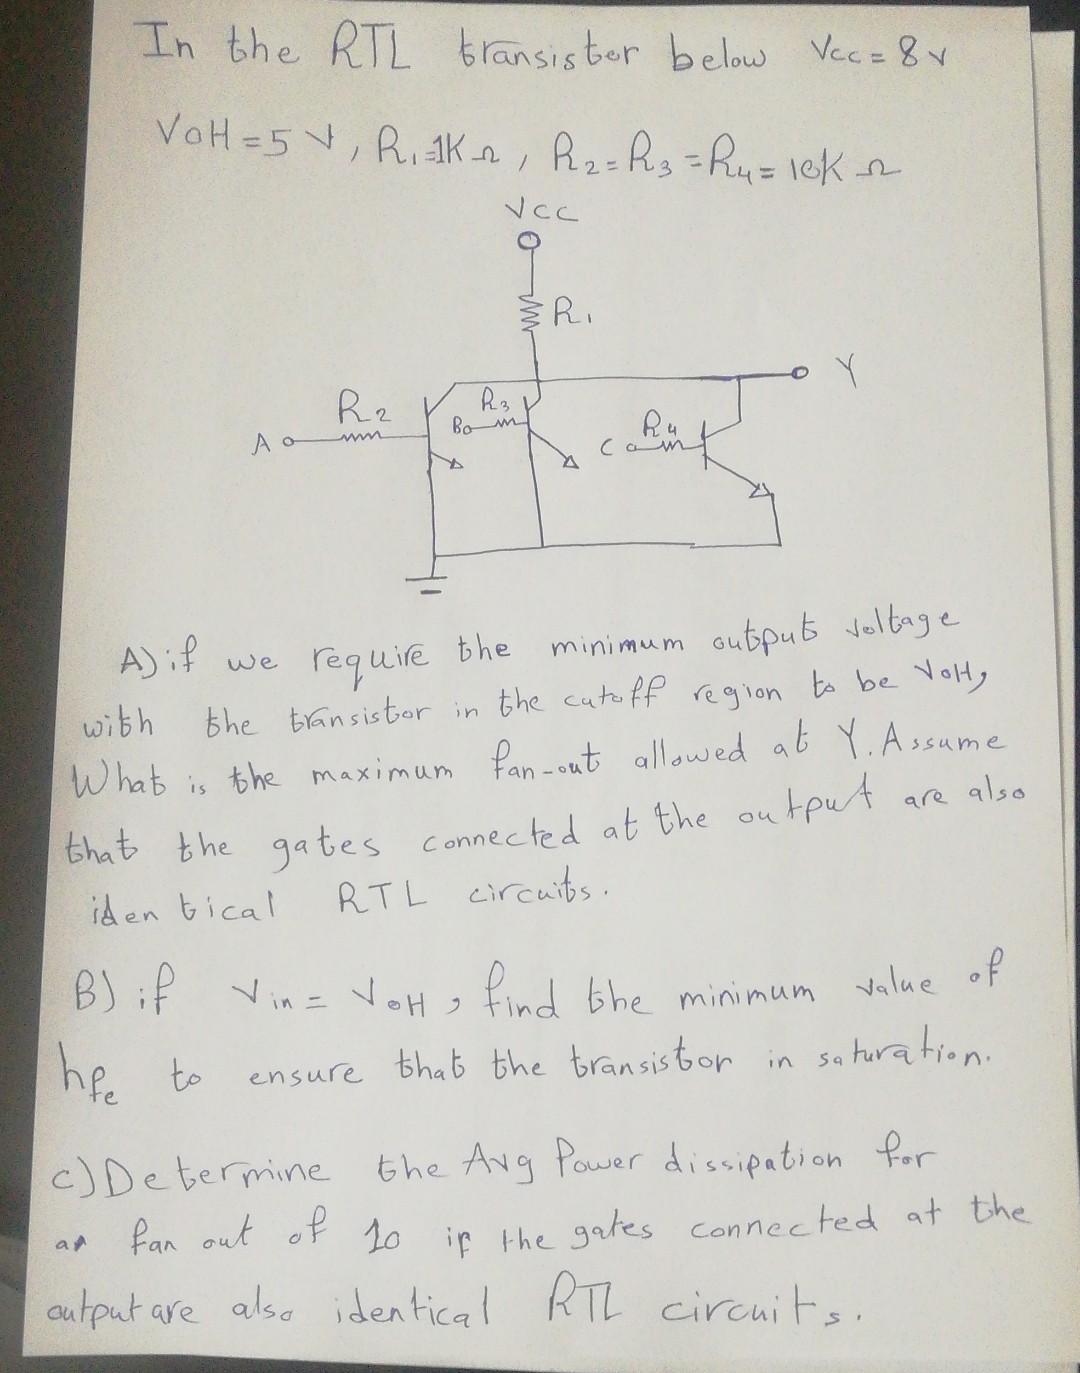 In the RTL transistor below Vcc = 8 v
VOH = 5 V, R₁=1K Ω, R₂=R₃=R₄= 10K Ω
VCC
R₁
Y
R₂
R₃
A
B
R₄
C
A) if we require the minimum output voltage
with the transistor in the cutoff region to be VOH,
What is the maximum fan-out allowed at Y. Assume
that the gates connected at the output are also
identical RTL circuits.
B) if Vin = VOH, find the minimum value of
hfe to ensure that the transistor in saturation.
C) Determine the Avg Power dissipation for
an fan out of 10 if the gates connected at the
output are also identical RTL circuits.